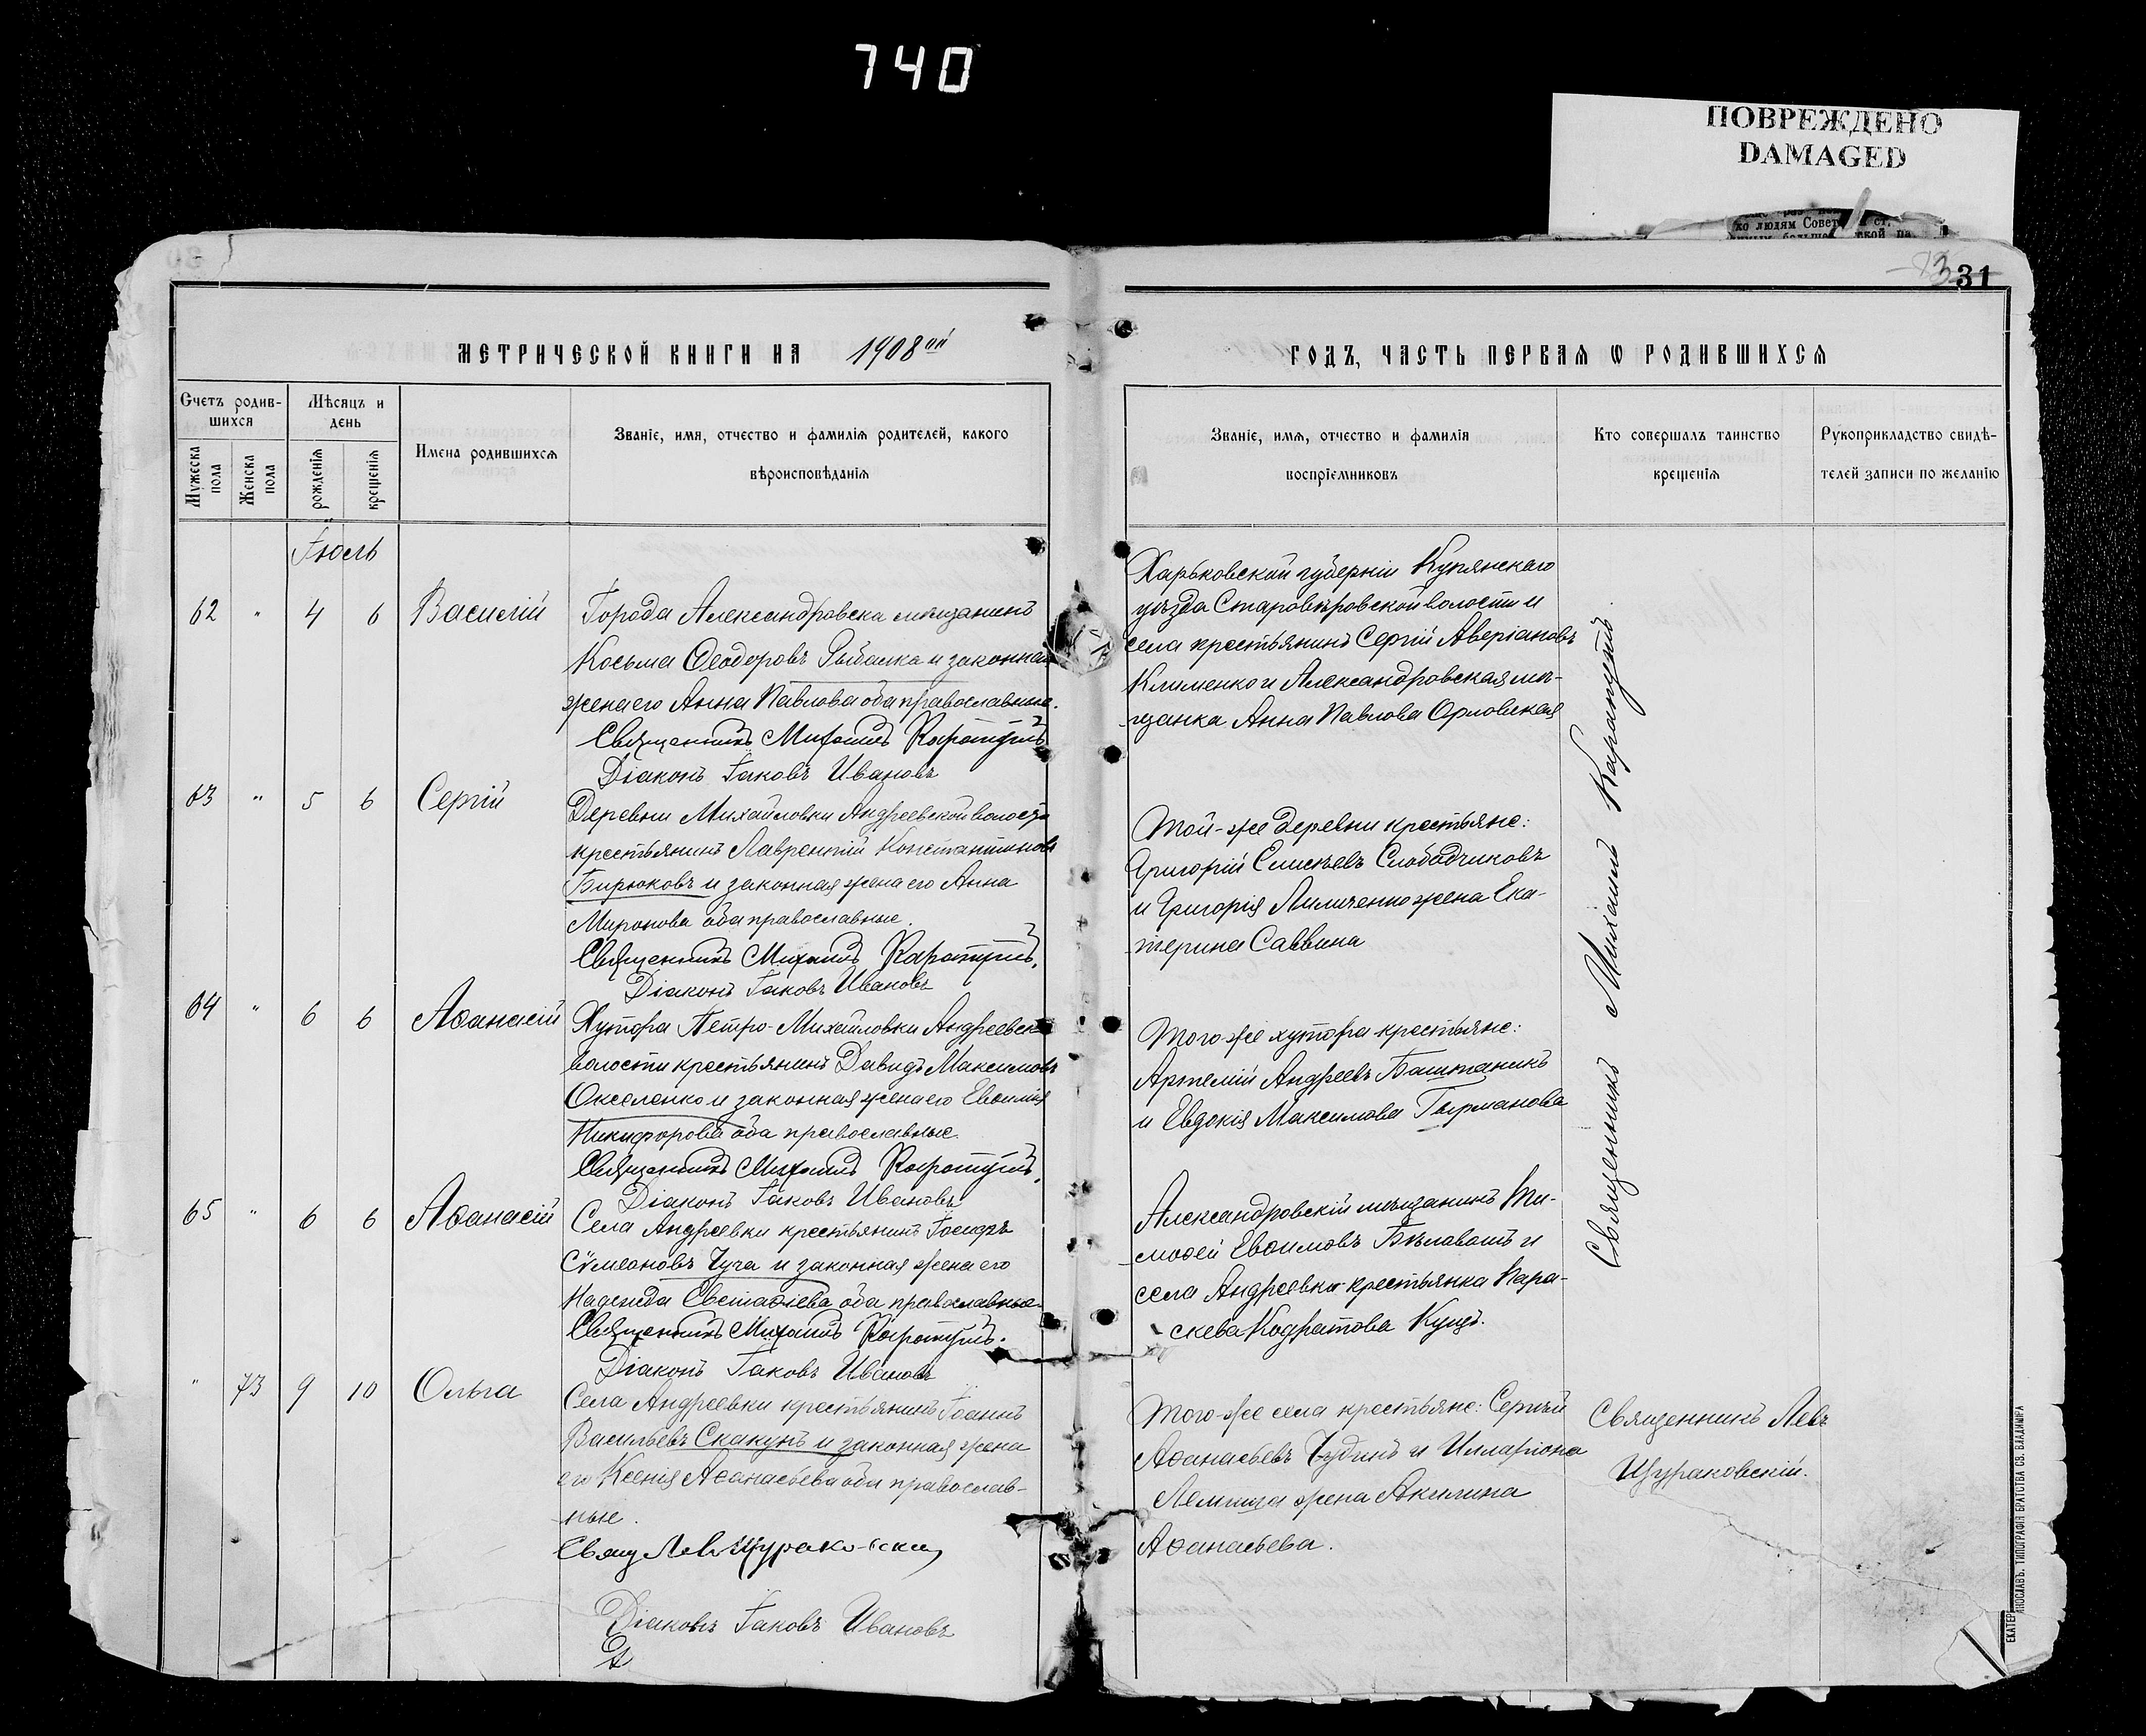 740
ПОВРЕЖДЕНО
DAMAGED
ко людям Совет ст.
31
МЕТРИЧЕСКОЙ КНИГИ НА 1908ой
ГОДЪ, ЧАСТЬ ПЕРВАЯ Ѡ РОДИВШИХСЯ
Счетъ родив-
шихся
Мужеска пола
Женска пола
Мѣсяцъ и
день
рожденія
крещенія
Имена родившихся
Званіе, имя, отчество и фамилія родителей, какого
вѣроисповѣданія
Званіе, имя, отчество и фамилія
воспріемниковъ
Кто совершалъ таинство
крещенія
Рукоприкладство свидѣ-
телей записи по желанію
Іюль
62 " 4 6 Василій
Города Александровска мѣщанинъ
Косьма Ѳеодоровъ Рыбалка и законная
жена его Анна Павлова оба православные.
Священникъ Михаилъ Карапудъ
Діаконъ Іаковъ Ивановъ
Харьковской губерніи Купянскаго
уѣзда Старовѣровской волости и
села крестьянинъ Сергій Аверіановъ
Клименко и Александровская мѣ-
щанка Анна Павлова Орловская
63 " 5 6 Сергій
Деревни Михайловки Андреевской волости
крестьянинъ Лаврентій Константиновъ
Бирюковъ и законная жена его Анна
Миронова оба православные.
Священникъ Михаилъ
Діаконъ Іаковъ Ивановъ
Той-же деревни крестьяне:
Григорій Елисѣевъ Слободчиковъ
и Григорія Лиличенко жена Ека-
терина Саввина
64 " 6 6 Аѳанасій
Хутора Петро-Михайловки Андреевской
волости крестьянинъ Давидъ Максимовъ
Окселенко и законная жена его Евѳимія
Никифорова оба православные.
Священникъ Михаилъ
Діаконъ Іаковъ Ивановъ
Того-же хутора крестьяне:
Артемій Андреевъ Баштаникъ
и Евдокія Максимова Гирманова
65 " 6 6 Аѳанасій
Села Андреевки крестьянинъ
Сѵмеоновъ Чуча и законная жена его
Надежда Евстаѳіева оба православные.
Священникъ Михаилъ
Діаконъ Іаковъ Ивановъ
Александровскій мѣщанинъ Ти-
моѳей Евѳимовъ и
села Андреевки крестьянка Пара-
скева Кодратова Куцъ.
Священникъ Михаилъ
" 73 9 10 Ольга
Села Андреевки крестьянинъ Іоаннъ
Васильевъ Скакунъ и законная жена
его Ксенія Аѳанасьева оба православ-
ные.
Свящ Левъ Щураковскій
Діаконъ Іаковъ Ивановъ
Того-же села крестьяне: Сергій
Аѳанасьевъ Чубинъ и Илларіона
жена Акилина
Аѳанасьева.
Священникъ Левъ
Щураковскій.
ЕКАТЕРИНОСЛАВЪ. ТИПОГРАФІЯ БРАТСТВА СВ. ВЛАДИМІРА